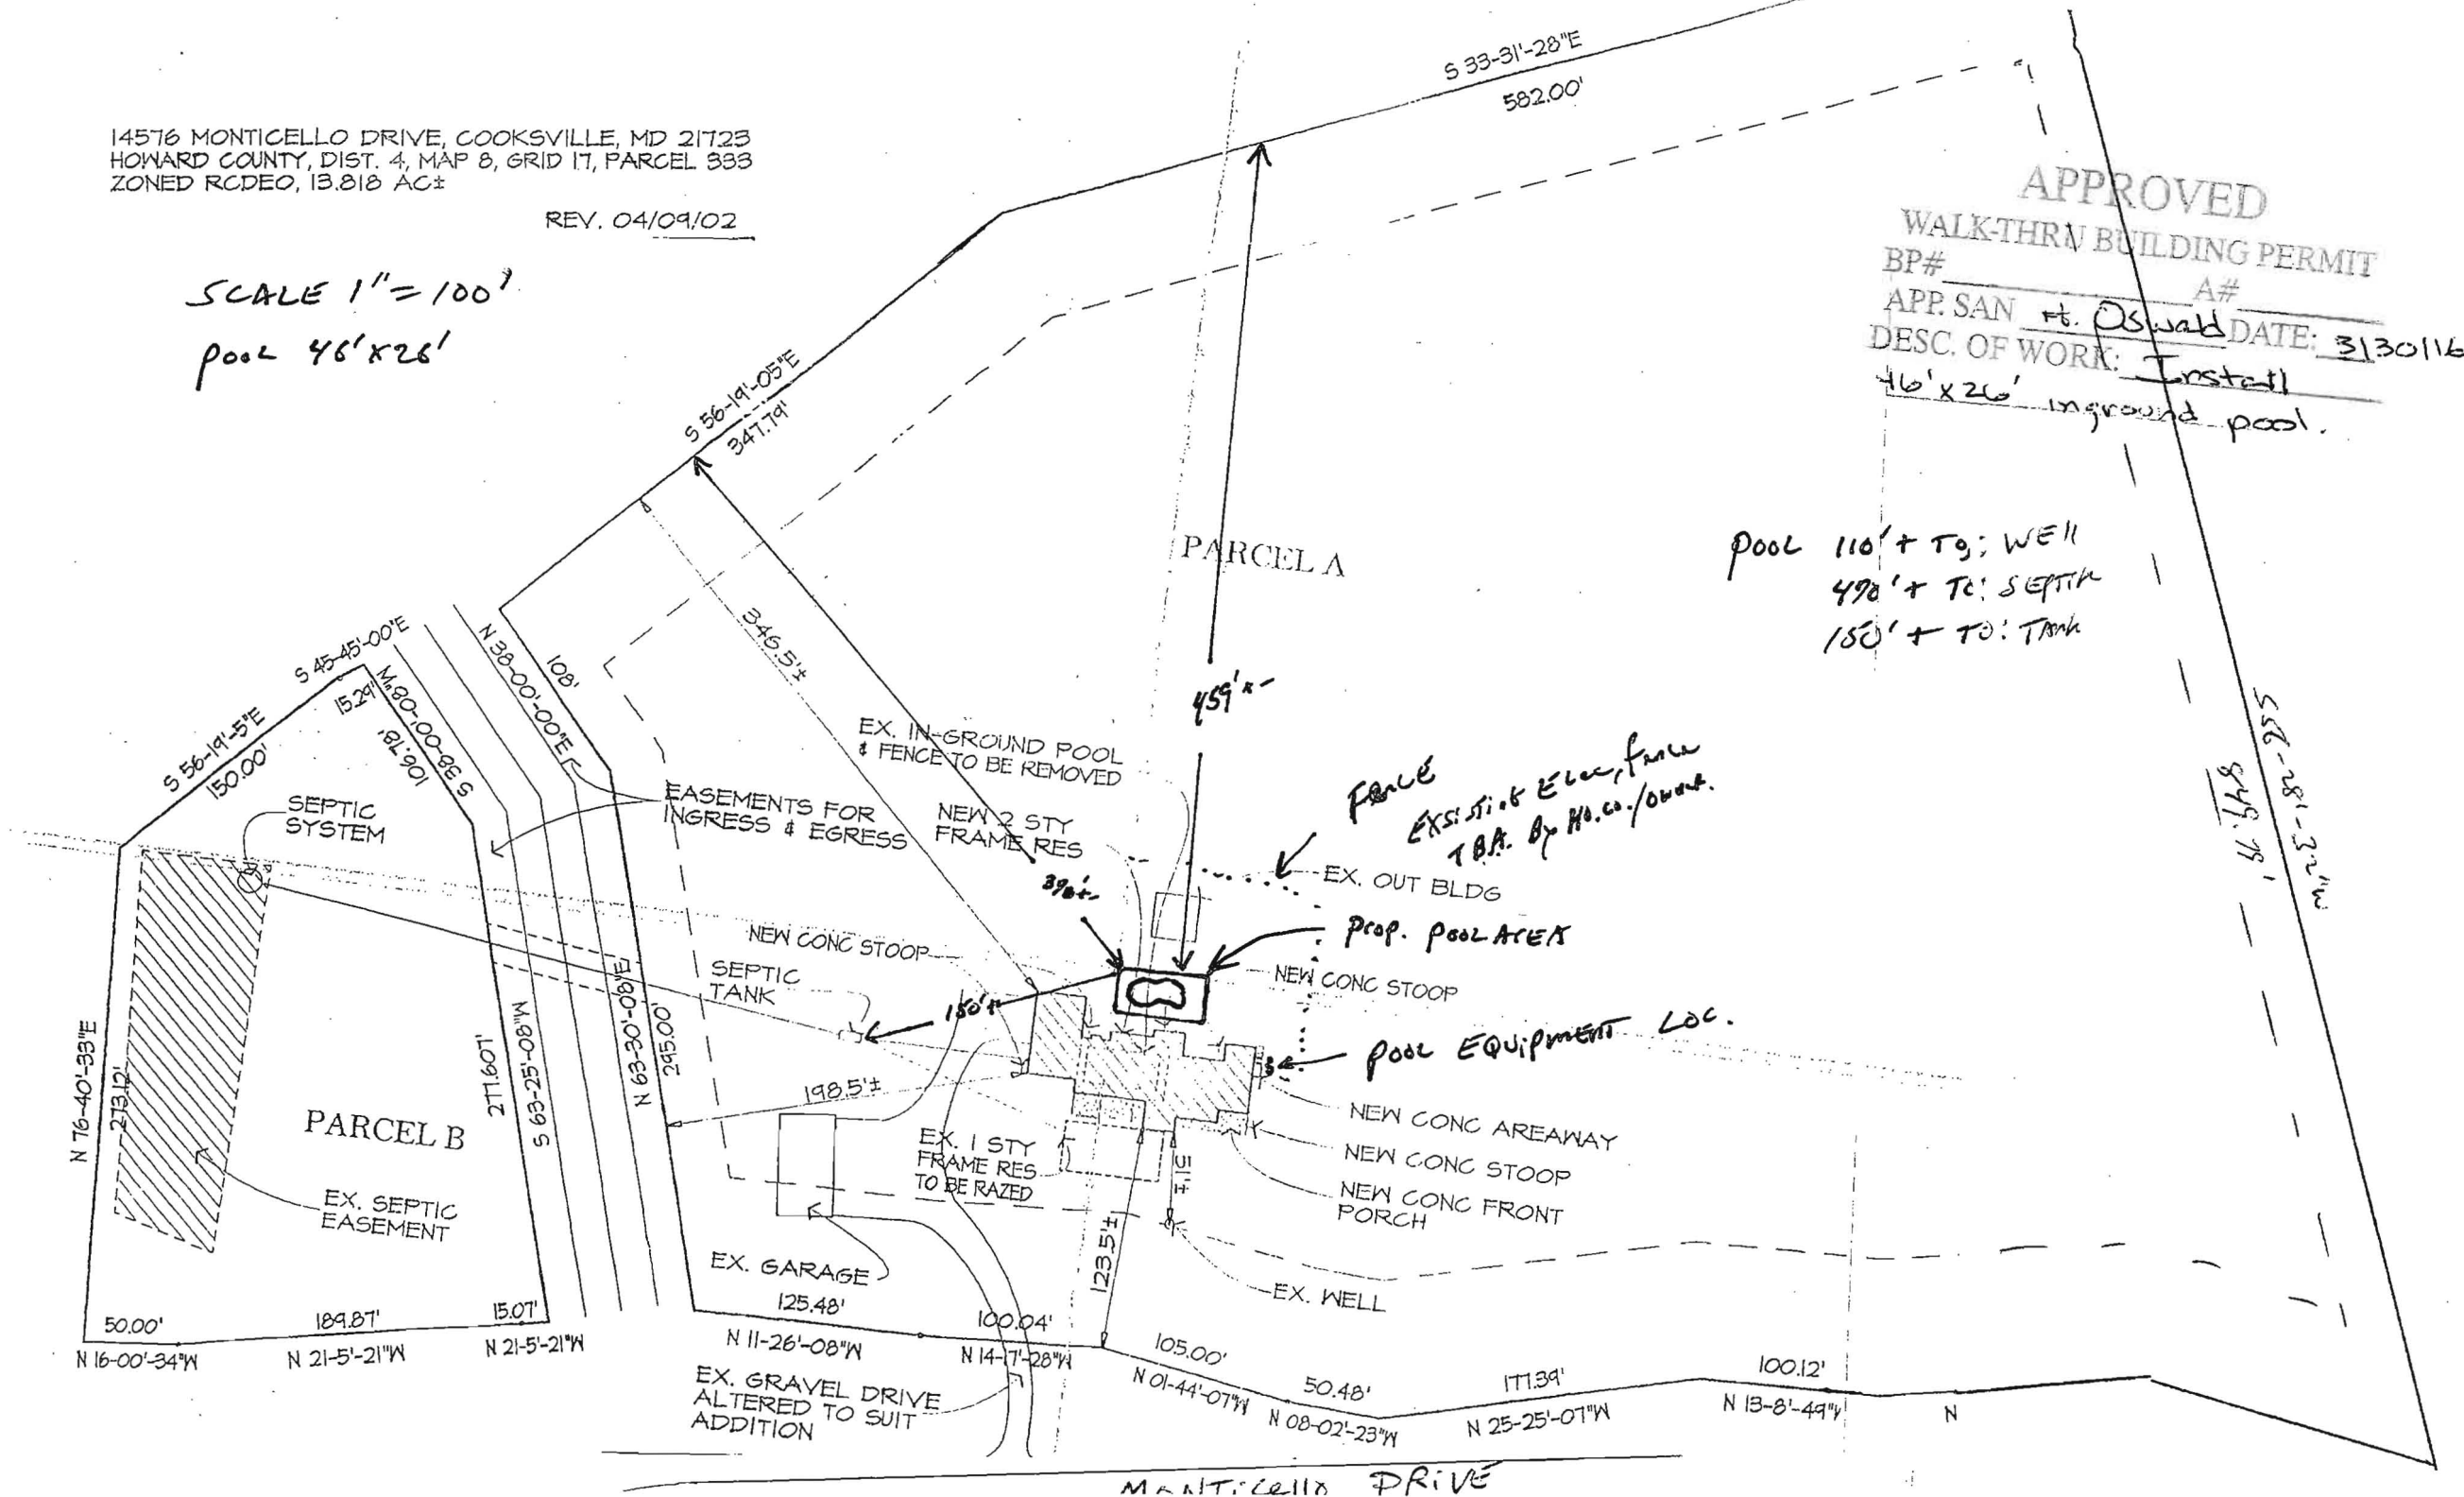 14576 MONTICELLO DRIVE, COOKSVILLE, MD 21723
HOWARD COUNTY, DIST. 4, MAP 8, GRID 17, PARCEL 333
ZONED RCDEO, 13.818 AC±
REV. 04/09/02
SCALE 1"=100'
POOL 46'X26'
S 33-31'-28"E
582.00'
APPROVED
WALK-THRU BUILDING PERMIT
BP#
A#
APP. SAN H. Oswald DATE: 3/30/16
DESC. OF WORK: Install
46'x26' inground pool.
S 56-19'-05"E
347.79'
PARCEL A
POOL 110'+ TO: WELL
470'+ TO: SEPTIK
150'+ TO: TANK
346.5'±
459'+-
N 38-00'-00"E
108'
S 45-45'-00"E
15.29'
S 38-00'-08"W
106.78'
S 56-19'-5"E
150.00'
SEPTIC
SYSTEM
EASEMENTS FOR
INGRESS & EGRESS
EX. IN-GROUND POOL
& FENCE TO BE REMOVED
NEW 2 STY
FRAME RES
FENCE
EXSISTING ELEC, fence
T.B.A. By HO.CO./OWNER.
849.79'
EX. OUT BLDG
390'+-
PROP. POOL AREA
NEW CONC STOOP
NEW CONC STOOP
SEPTIC
TANK
150'+-
POOL EQUIPMENT LOC.
N 76-40'-33"E
273.12'
277.607'
S 63-25'-08"W
N 63-30'-08"E
295.00'
198.5'±
PARCEL B
EX. SEPTIC
EASEMENT
EX. 1 STY
FRAME RES
TO BE RAZED
51'±
NEW CONC AREAWAY
NEW CONC STOOP
NEW CONC FRONT
PORCH
123.5'±
EX. GARAGE
EX. WELL
50.00'
189.87'
15.07'
125.48'
100.04'
105.00'
50.48'
177.39'
100.12'
N 16-00'-34"W
N 21-5'-21"W
N 21-5'-21"W
N 11-26'-08"W
N 14-17'-28"W
N 01-44'-07"W
N 08-02'-23"W
N 25-25'-07"W
N 13-8'-49"W
N
EX. GRAVEL DRIVE
ALTERED TO SUIT
ADDITION
MONTICELLO DRIVE